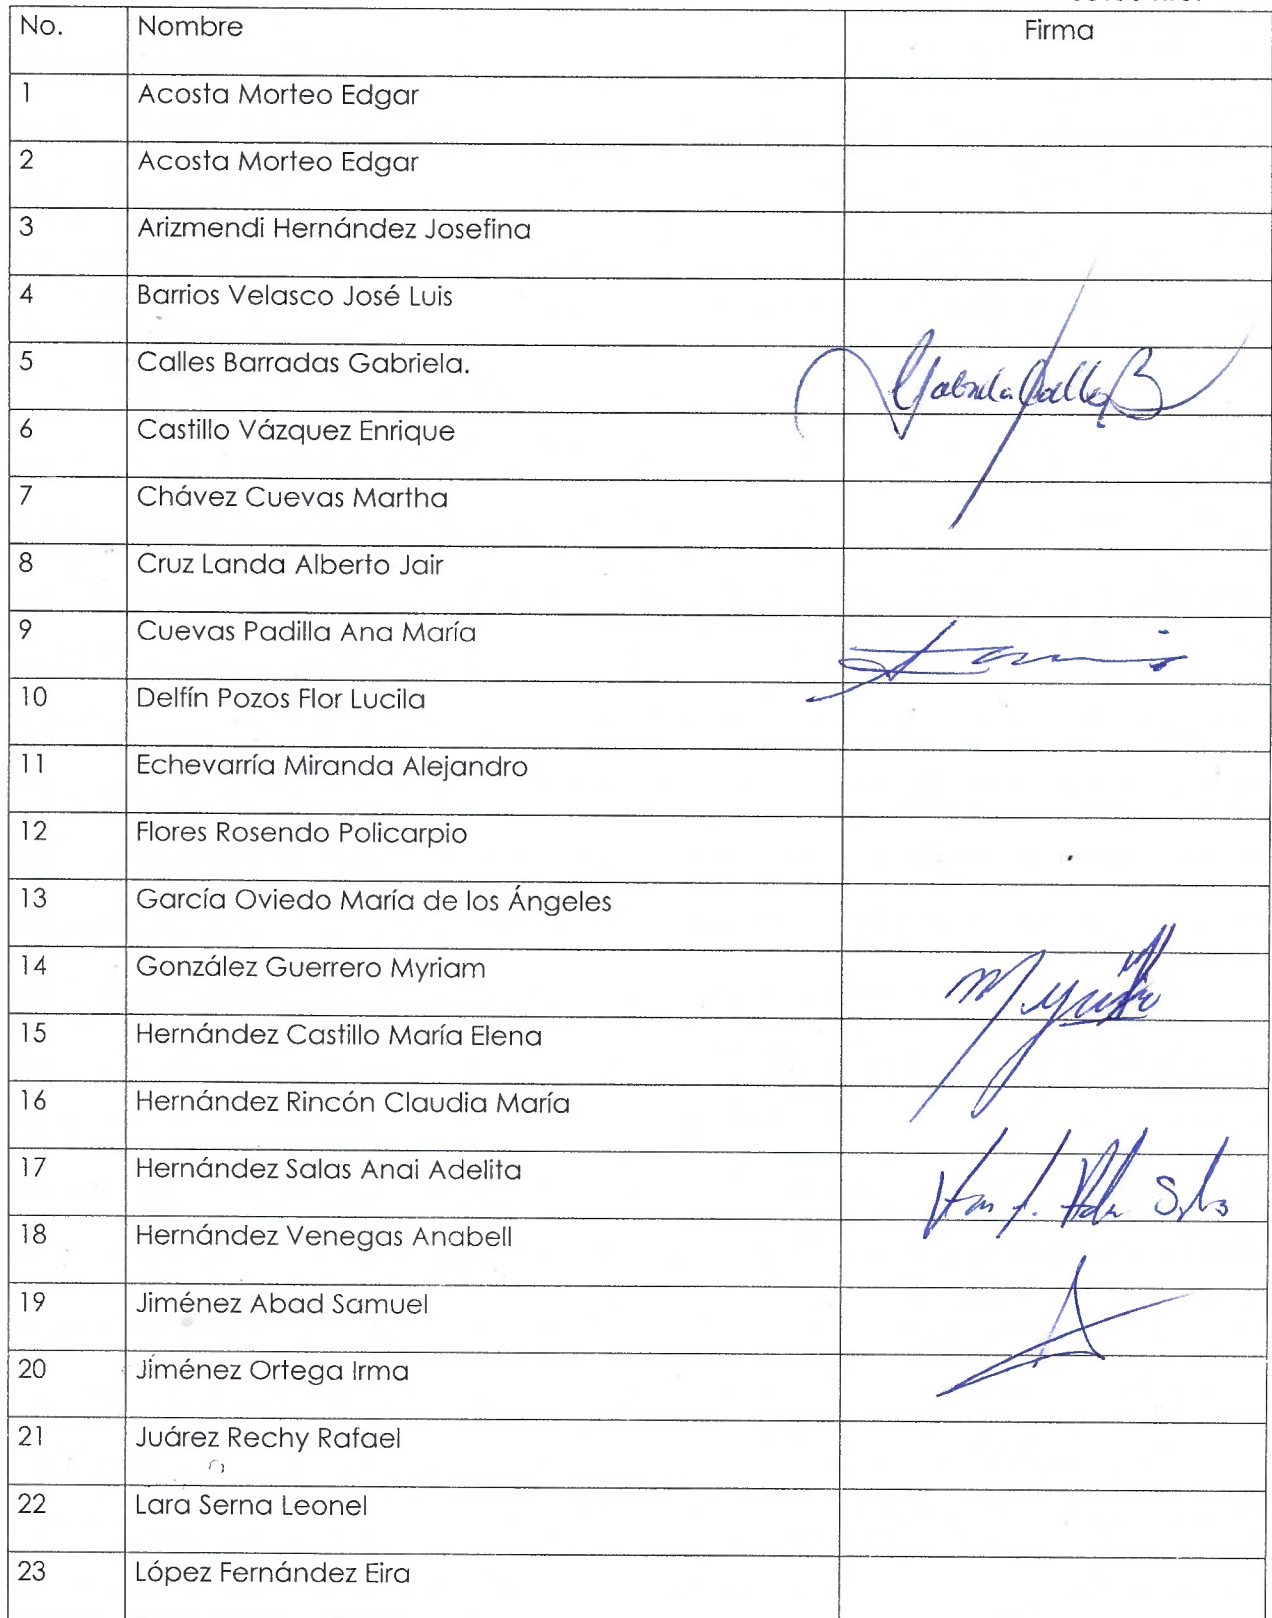 No. Nombre Firma
1 Acosta Morteo Edgar
2 Acosta Morteo Edgar
3 Arizmendi Hernández Josefina
4 Barrios Velasco José Luis
5 Calles Barradas Gabriela. Gabriela Calles B
6 Castillo Vázquez Enrique
7 Chávez Cuevas Martha
8 Cruz Landa Alberto Jair
9 Cuevas Padilla Ana María
10 Delfín Pozos Flor Lucila
11 Echevarría Miranda Alejandro
12 Flores Rosendo Policarpio
13 García Oviedo María de los Ángeles
14 González Guerrero Myriam
15 Hernández Castillo María Elena
16 Hernández Rincón Claudia María
17 Hernández Salas Anai Adelita
18 Hernández Venegas Anabell
19 Jiménez Abad Samuel
20 Jiménez Ortega Irma
21 Juárez Rechy Rafael
22 Lara Serna Leonel
23 López Fernández Eira